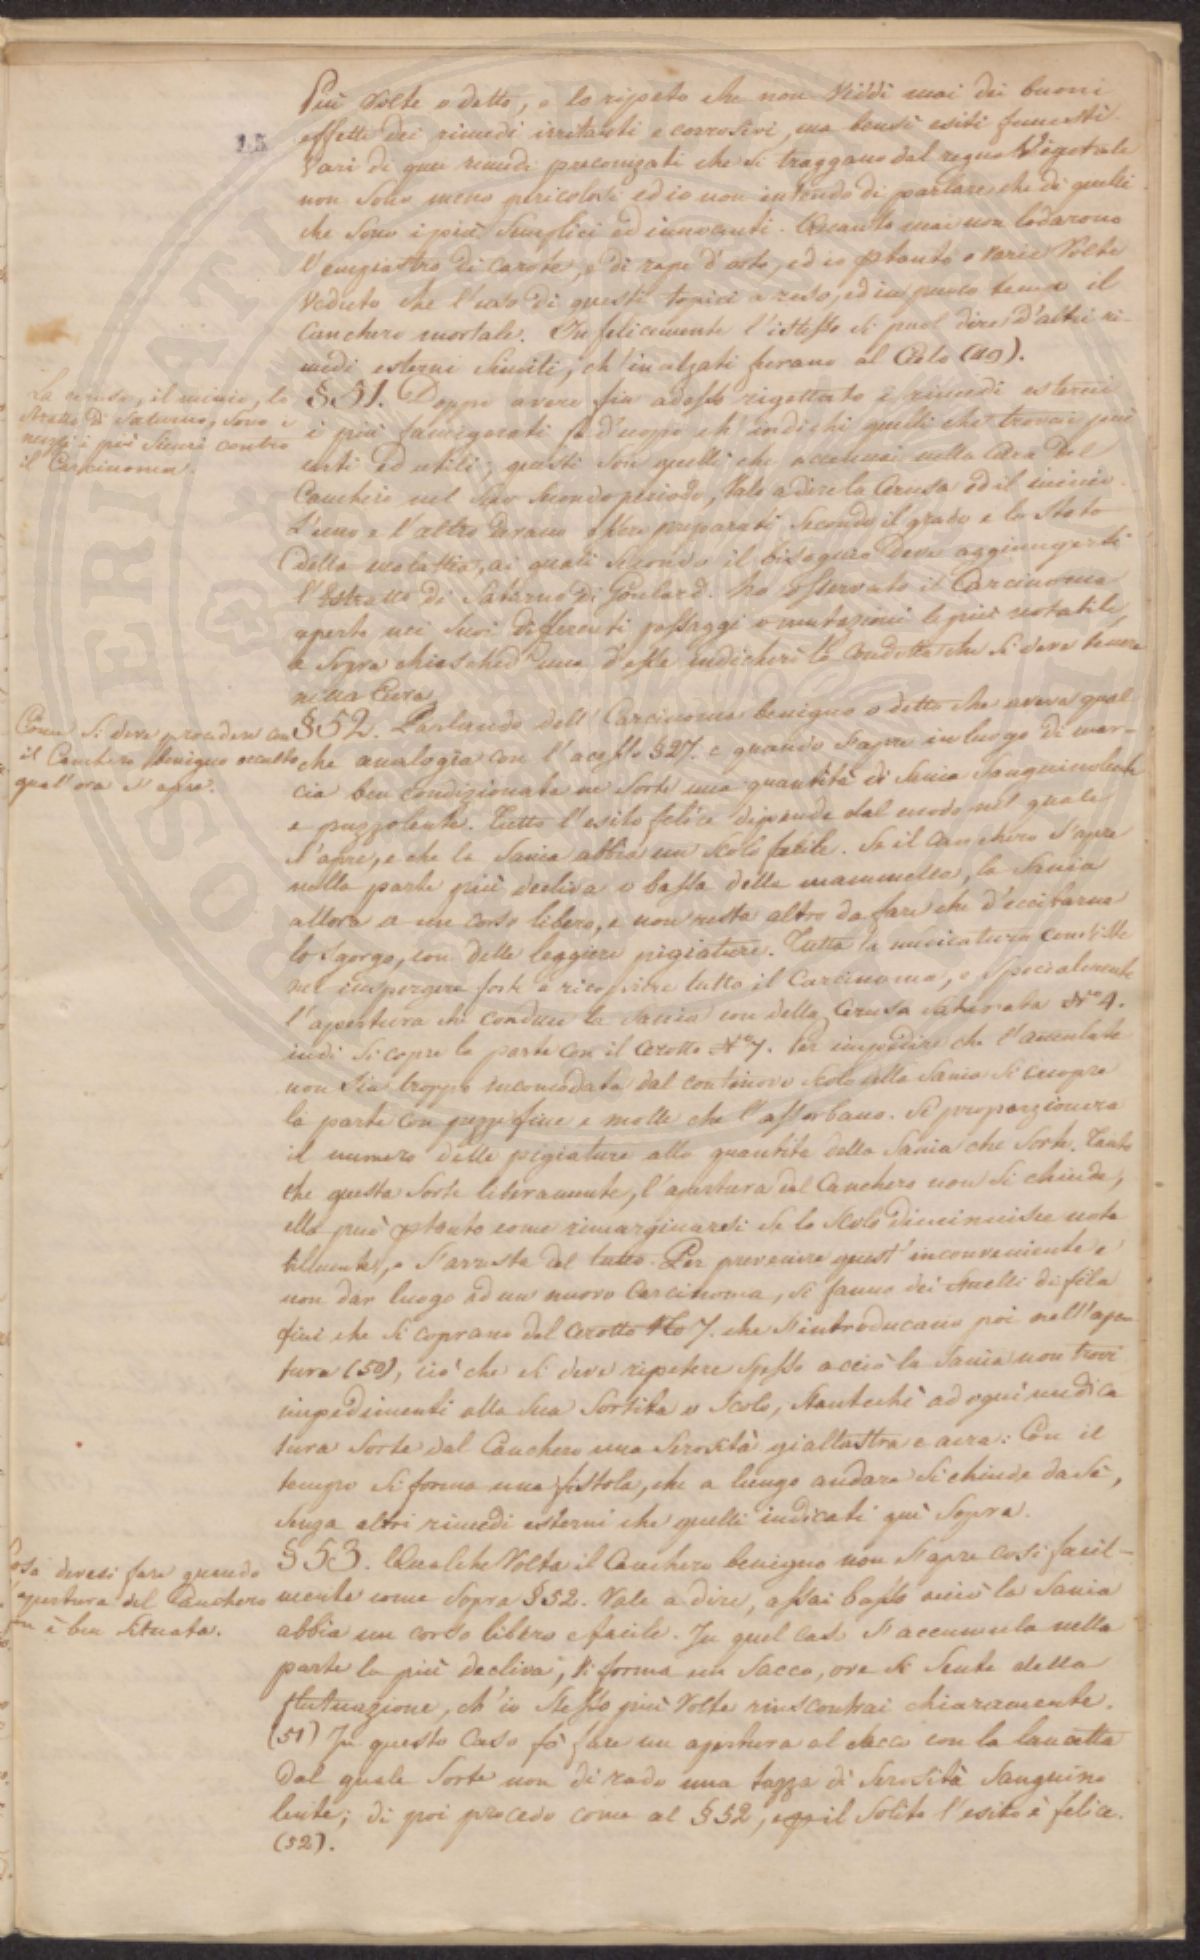 15
Più Volte o detto, e lo ripeto che non Viddi mai dei buoni
effetti dei rimedi irritanti e corrosivi, ma bensì esiti funesti.
Vari di quei rimedi preconizati che si traggano dal regno Vegetale
non sono meno pericolosi ed io non intendo di parlare che di quelli
che sono i più semplici ed innocenti. Quanto mai non lodarono
l'empiastro di Carote, e di rape d'orto, ed io ptanto o varie Volte
Veduto che l'uso di questi topici a reso, ed in puoco tempo il
Canchero mortale. Infelicemente l'istesso si puol dire d'altri ri-
medi esterni simili, ch'inalzati furano al Cielo (49).
La cerusa, il minio, lo
stratto di Saturno, sono i
più sicuri contro
il Carcinoma.
§51. Doppo avere fin adesso rigettato i rimedi esterni
i più fa d'uopo ch'indichi quelli che trovai più
certi ed utili; questi son quelli che accennai nella Cura del
Canchero nel suo secondo periodo, Vale a dire la Cerusa ed il minio.
L'uno e l'altro devano essere preparati secondo il grado e lo stato
della malattia, ai quali secondo il bisogno deve aggiungersi
l'Estratto di Saturno di Goulard. Ho osservato il Carcinoma
aperto nei suoi differenti passaggi o mutazioni le più notabili,
e sopra chiascheduna d'esse indicherò la Condotta che si deve tenere
nella Cura.
Come si deve procedere con
il Canchero benigno occulto
qual'ora s'apre.
§52. Parlando dell'Carcinoma benigno o detto che aveva qual-
che analogia con l'acesso §27. e quando s'apre in luogo di mar-
cia ben condizionata ne sorte una quantità di Sania Sanguinolenta
e puzzolente. Tutto l'esito felice dipende dal modo nel quale
s'apre, e che la Sania abbia un scolo facile. Se il Canchero s'apre
nella parte più decliva o bassa della mammella, la Sania
allora a un corso libero, e non resta altro da fare che d'eccitarne
lo sgorgo, con delle leggiere pigiature. Tutta la medicatura consiste
nel inspergere forte e ricoprire tutto il Carcinoma, e specialmente
l'apertura che conduce la Sania con della Cerusa saturata N°4.
indi si copre la parte con il Cerotto N°7. Per impedire che l'ammalata
non sia troppo incomodata dal continovo scolo della Sania si cuopre
la parte con pezze fine e molle che l'assorbano. Si proporzionera
il numero delle pigiature alla quantità della Sania che sorte. Tanto
che questa sorte liberamente, l'apertura del Canchero non si chiude,
ella può ptanto come rimarginarsi se lo scolo diminuisce nota
bilmente, o s'arresta del tutto. Per prevenire quest'inconveniente e
non dar luogo ad un nuovo Carcinoma, si fanno dei stuelli di fila
fini che si coprano del Cerotto No 7. che s'introducano poi nell'aper-
tura (50), ciò che si deve ripetere spesso acciò la Sania non trovi
impedimenti alla sua sortita o scolo, stantechè ad ogni medica
tura sorte dal Canchero una serosità giallastra e acra: Con il
tempo si forma una fistola, che a lungo andare si chiude da sè,
senza altri rimedi esterni che quelli indicati quì sopra.
Cosa devesi fare quando
l'apertura del Canchero
non è ben situata.
§53. Qualche Volta il Canchero benigno non s'apre così facil-
mente come sopra §52. Vale a dire, assai basso acciò la Sania
abbia un corso libero e facile. In quel caso s'accumula nella
parte la più decliva, si forma un sacco, ove si sente della
fluttuazione, ch'io stesso più Volte riscontrai chiaramente.
(51) In questo Caso fò fare un apertura al sacco con la lancetta
dal quale sorte non di rado una tazza di serosità sanguino
lente; di poi procedo come al §52, e il solito l'esito è felice.
(52).